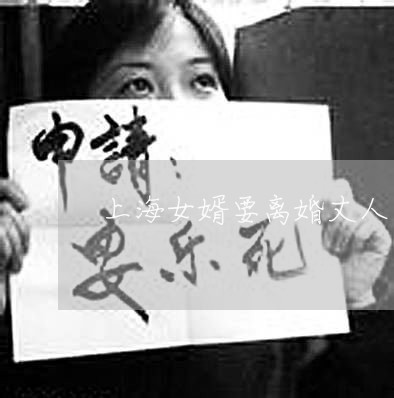 申請：
上海女婿要离婚丈人
要乐死